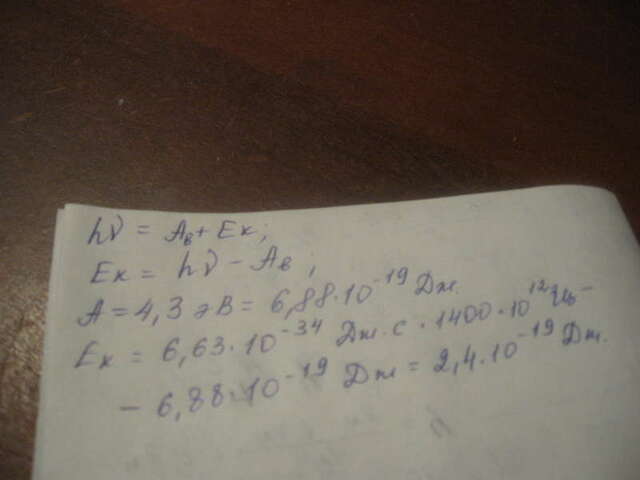 hν = Aв + Eк;
Eк = hν - Aв;
A = 4,3 эВ = 6,88·10⁻¹⁹ Дж.
Eк = 6,63·10⁻³⁴ Дж·с · 1400·10¹² Гц -
- 6,88·10⁻¹⁹ Дж = 2,4·10⁻¹⁹ Дж.